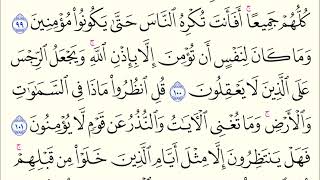 كُلُّهُمْ جَمِيعًا ۚ أَفَأَنتَ تُكْرِهُ ٱلنَّاسَ حَتَّىٰ يَكُونُوا۟ مُؤْمِنِينَ ٩٩
وَمَا كَانَ لِنَفْسٍ أَن تُؤْمِنَ إِلَّا بِإِذْنِ ٱللَّهِ ۚ وَيَجْعَلُ ٱلرِّجْسَ
عَلَى ٱلَّذِينَ لَا يَعْقِلُونَ ١٠٠ قُلِ ٱنظُرُوا۟ مَاذَا فِى ٱلسَّمَٰوَٰتِ
وَٱلْأَرْضِ ۚ وَمَا تُغْنِى ٱلْءَايَٰتُ وَٱلنُّذُرُ عَن قَوْمٍ لَّا يُؤْمِنُونَ ١٠١
فَهَلْ يَنتَظِرُونَ إِلَّا مِثْلَ أَيَّامِ ٱلَّذِينَ خَلَوْا۟ مِن قَبْلِهِمْ ۚ